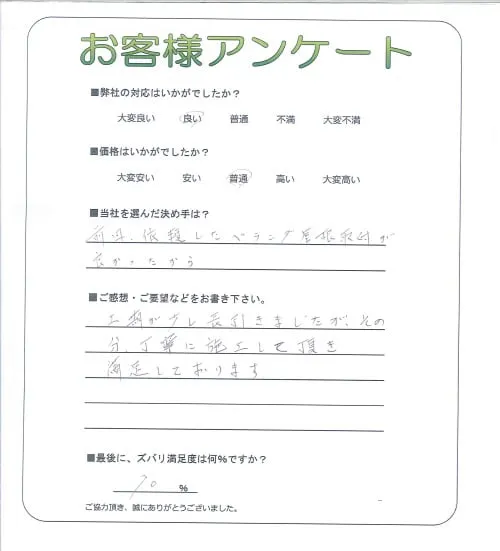 お客様アンケート
■弊社の対応はいかがでしたか？
大変良い 良い 普通 不満 大変不満
■価格はいかがでしたか？
大変安い 安い 普通 高い 大変高い
■当社を選んだ決め手は？
前回、依頼したベランダ屋根取付が
良かったから
■ご感想・ご要望などをお書き下さい。
工期が少し長引きましたが、その
分、丁寧に施工して頂き
満足しております
■最後に、ズバリ満足度は何％ですか？
70 ％
ご協力頂き、誠にありがとうございました。